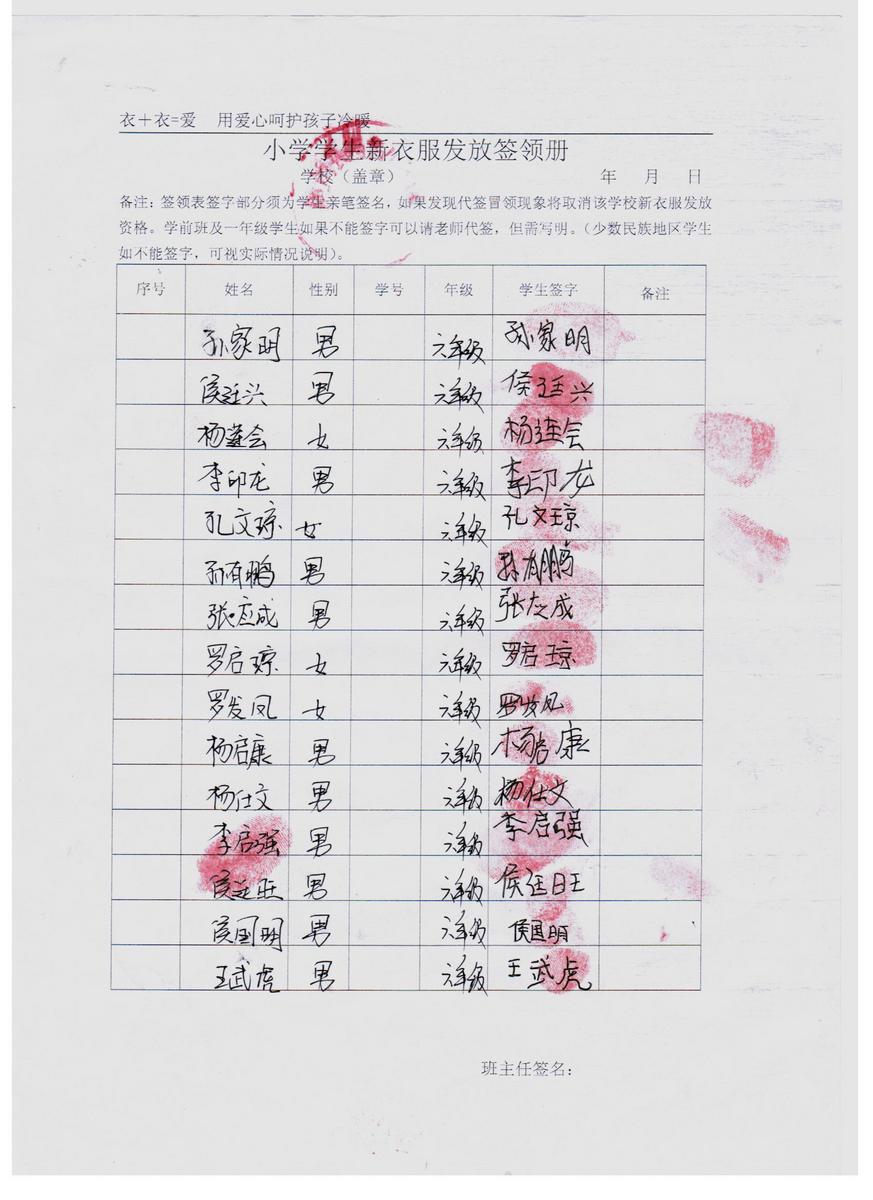 衣+衣=爱 用爱心呵护孩子冷暖
小学学生新衣服发放签领册
学校（盖章） 年 月 日
备注：签领表签字部分须为学生亲笔签名，如果发现代签冒领现象将取消该学校新衣服发放
资格。学前班及一年级学生如果不能签字可以请老师代签，但需写明。（少数民族地区学生
如不能签字，可视实际情况说明）。
序号 姓名 性别 学号 年级 学生签字 备注
孙家明 男 六年级 孙家明
侯廷兴 男 六年级 侯廷兴
杨莲会 女 六年级 杨连会
李印龙 男 六年级 李印龙
孔文琼 女 六年级 孔文琼
孙有鹏 男 六年级 孙有鹏
张应成 男 六年级 张应成
罗启琼 女 六年级 罗启琼
罗发凤 女 六年级 罗发凤
杨启康 男 六年级 杨启康
杨仕文 男 六年级 杨仕文
李启强 男 六年级 李启强
侯廷旺 男 六年级 侯廷旺
侯国明 男 六年级 侯国明
王武虎 男 六年级 王武虎
班主任签名：